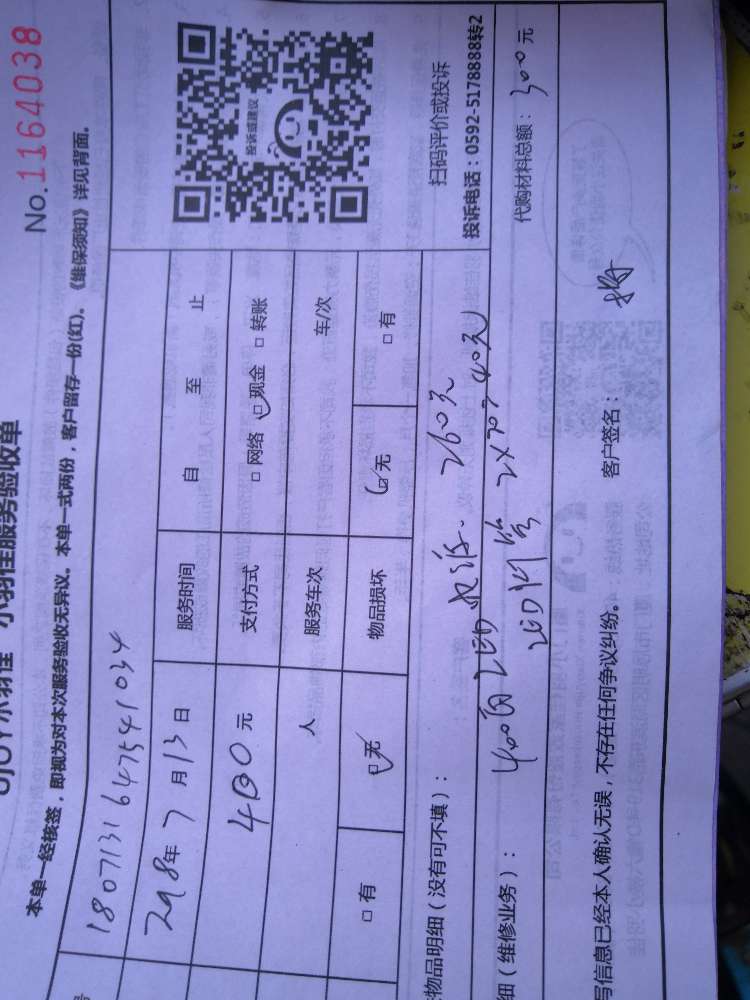 UJOY小羽佳 小羽佳服务验收单 No.1164038
本单一经核签，即视为对本次服务验收无异议。本单一式两份，客户留存一份(红)。《维保须知》详见背面。
号 1807131647541034
2018年7月13日 服务时间 自 至 止
元 支付方式 □网络 ☑现金 □转账
人 服务车次 车/次
□有 ☑无 物品损坏 ☑无 □有
投诉或建议
扫码评价或投诉
投诉电话：0592-5178888转2
物品明细（没有可不填）：
260元
细（维修业务）： LED 2×20=40元 代购材料总额：300元
写信息已经本人确认无误，不存在任何争议纠纷。 客户签名：